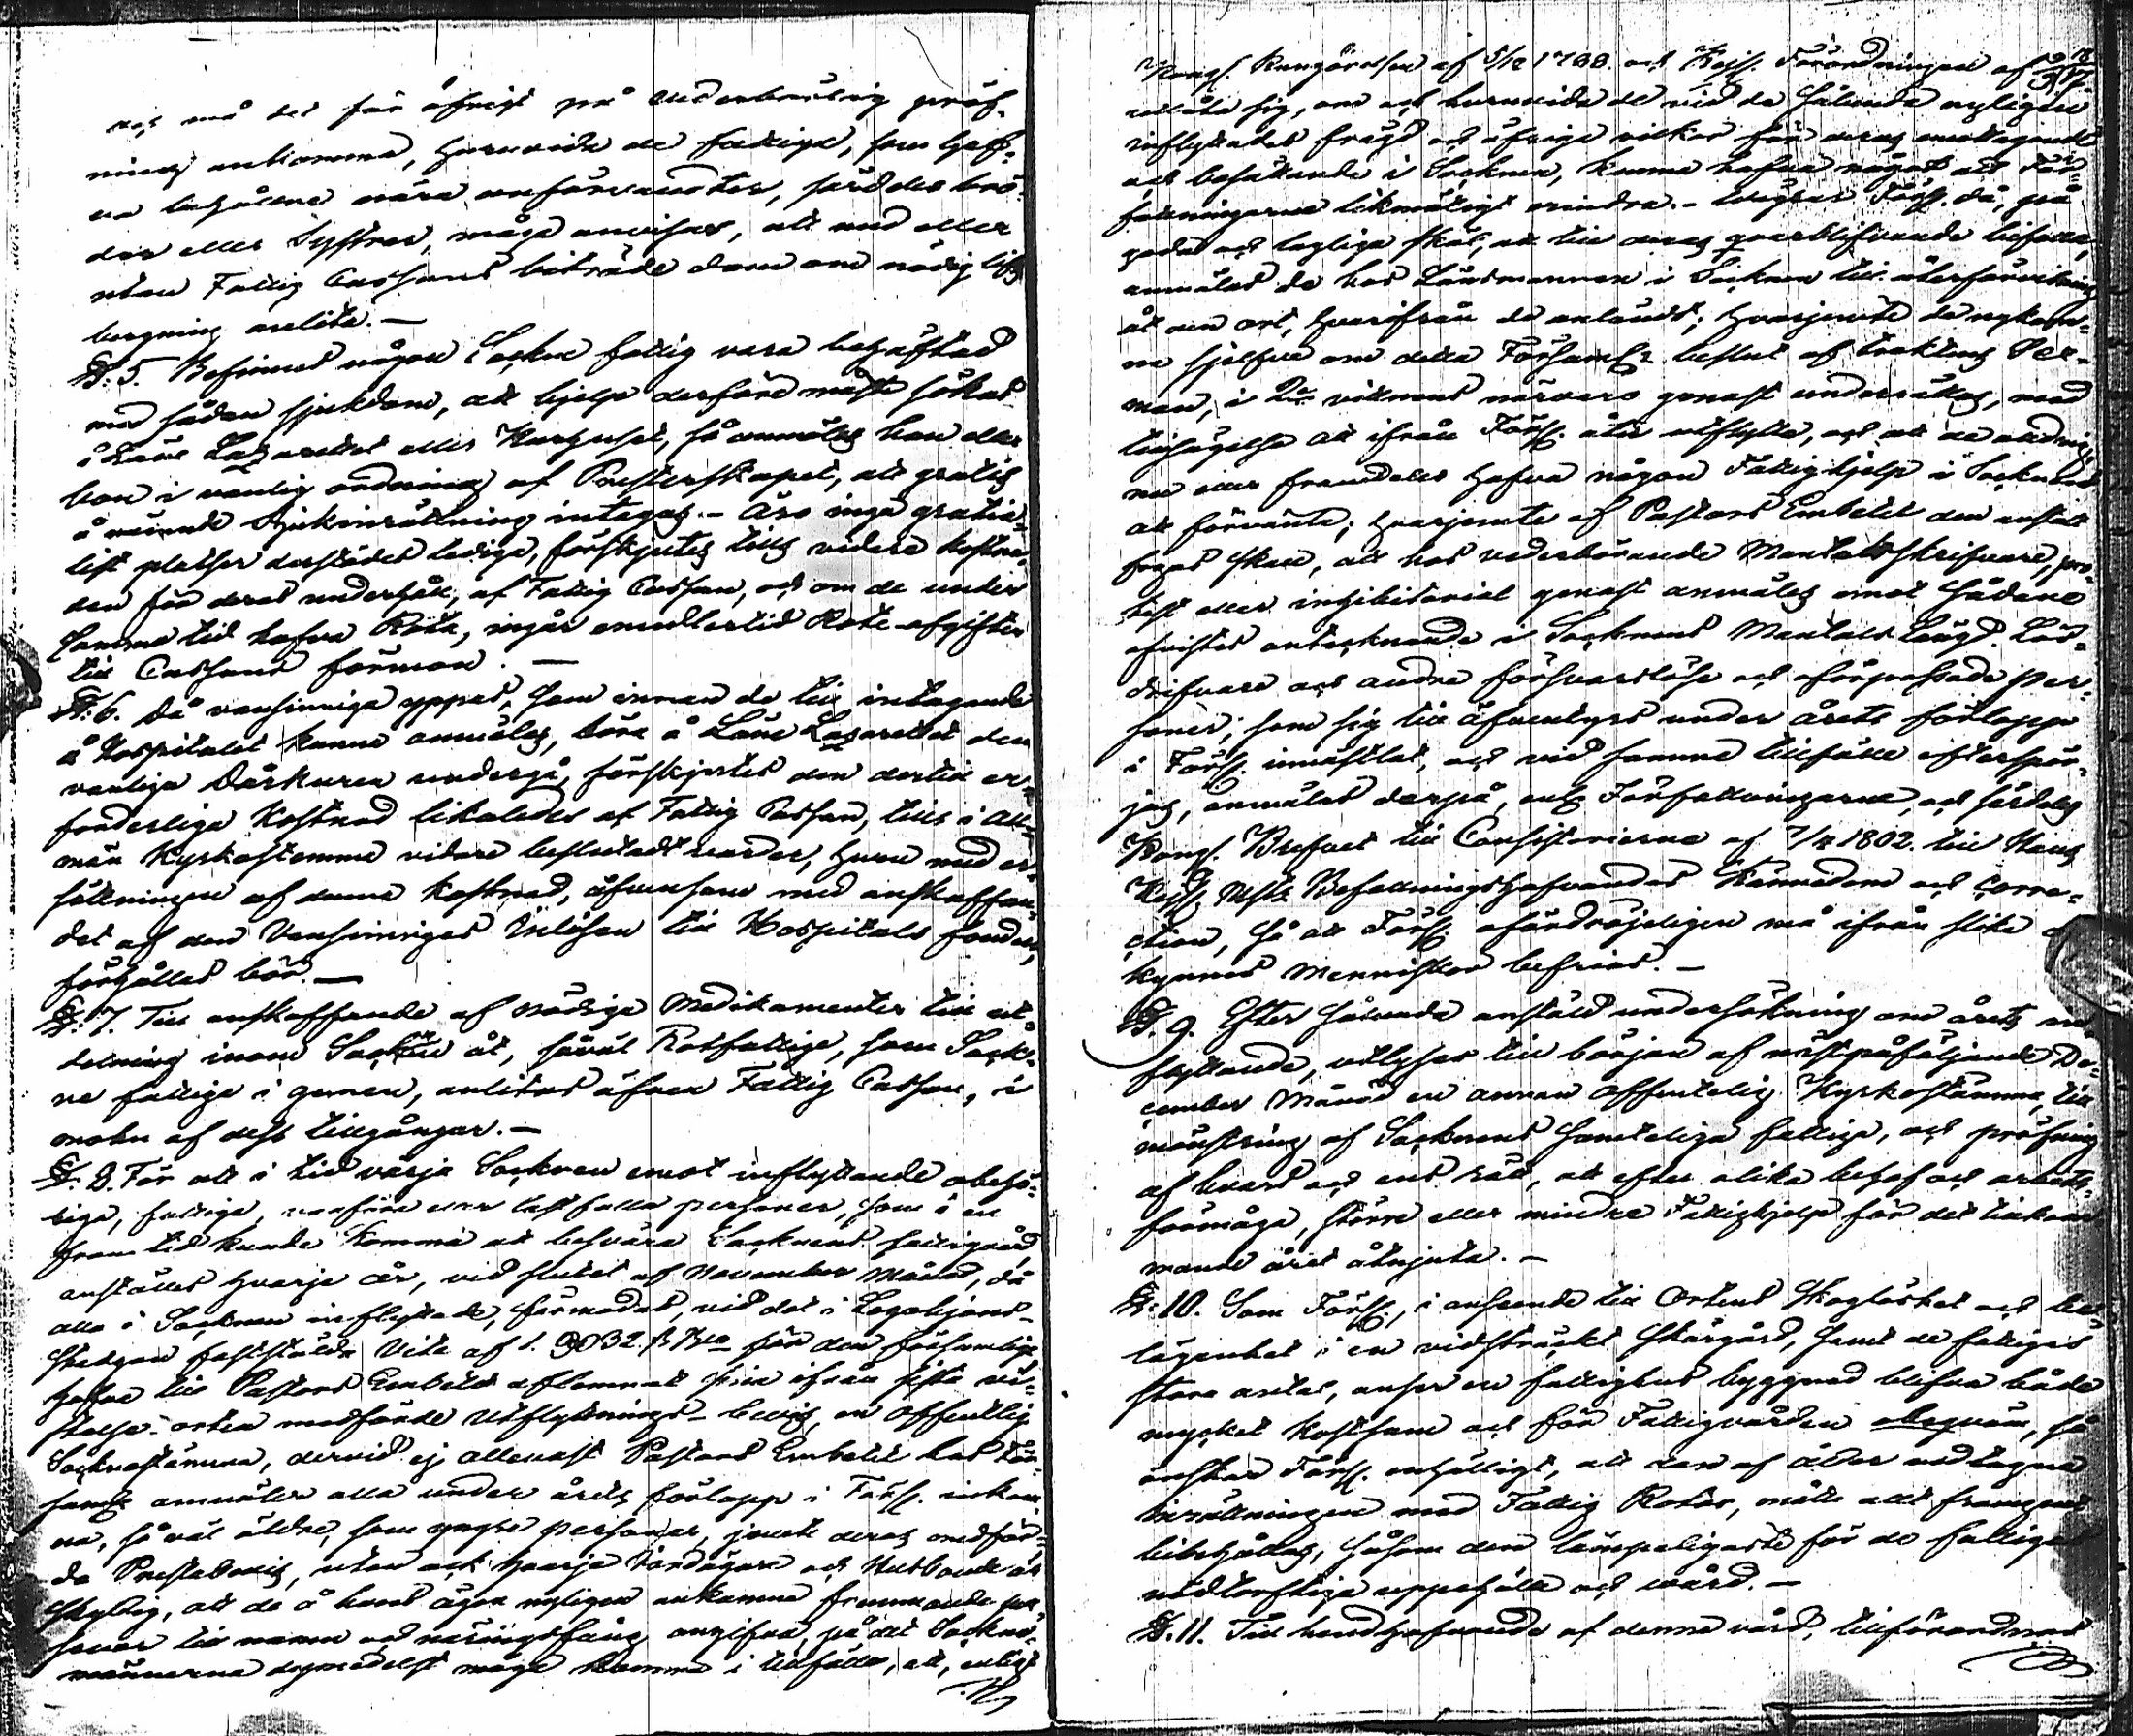 må det för öfrigt på undersökning pröf-
ning ankomma, huruvida de fattige, som haf-
va behållne nära anförvandter, särdeles brö-
der eller Systrar, måga anvisas, att med eller
utan Fattig Cassans biträde dem om nödig lifs
bergning anlita. –
§. 5. Befinnes någon Socken fattig vara behäftad
med sådan sjukdom, att hjelp derföre måste sökas
i Läns Lazarettet eller Kurhuset, så anmäles han eller
hon i vanlig ordning af Presterskapet, att gratis
å nämnde Sjukinrättning intagas. – Äro inga gratia-
list platser derstädes lediga, förskjutes tills vidare kostna-
den för deras underhåll, af Fattig Cassan, och om de under
samma tid hafva Rote, ingår emedlertid Rote-afgiften
till Cassans förmon. –
§. 6. Då vansinniga yppas, som innan de till intagande
å Hospitalet kunna anmälas, böra å Läns Lazarettet den
vanliga Dårkuren undergå, förskjutes den dertill er-
forderliga Kostnad likaledes af Fattig Cassan, tills i all-
män Kyrkostämma vidare beslutadt varder, huru med er-
sättningen af denna kostnad, äfvensom med anskaffan-
det af den Vansinniges Inlösen till Hospitals fonden,
förhållas bör. –
§. 7. Till anskaffande af nödige Medikamenter till ut-
delning inom Socknen åt, såväl Rotfattige, som Sock-
ne fattige i gemen, anlitas äfven Fattig Cassan, i
mohn af dess tillgångar. –
§. 8. För att i tid värja Socknen emot inflyttande obehö-
rige, fattige, vanföre eller lastfulla personer, som i en
framtid kunde komma att besvära Socknens fattigvård,
anställes hvarje år, vid slutet af November Månad, då
alla i Socknen inflyttade, förmodas, vid det i Legohjons-
stadgan fastställda Vite af 1. 32. ß Bco för den försumlige
hafva till Pastors Embetet aflemnat sina ifrån sista vi-
stelse-orten medförde Utflyttnings-bevis, en offentlig
Socknestämma, dervid ej allenast Pastors Embetet hos För-
saml. anmäler alla under årets förlopp i Förs. inkom-
ne, så väl äldre, som yngre personer, jemte deras medför-
da Prestabevis, utan ock hvarje Jordägare och Husbonde är
skyldig, att de å hans ägor nyligen ankomne främmande per-
soner till namn och näringsfång angifva, på det Sockne-
männerna dymedelst måga komma i tillfälle, att, enligt
Kongl. Kungörelsen af 5/12 1788. och Kejs. Förordningen af
utlåta sig, om och huruvida de vid de sålunda nyligen
inflyttades frägd och öfriga vilkor för deras emottagande
och besittande i Socknen, kunna hafva något att För-
fattningarne likmätigt erindra. – Vägrar Förs. då, på
goda och lagliga skäl, att till deras qvarblifvande bifalla,
anmäles de hos Länsmannen i Socknen till återförvisning
åt den ort, hvarifrån de anländt; hvarjemte de nykom-
ne sjelfve om detta Församl:s beslut af traktens Sex-
man, i 2ne vittnens närvaro genast underrättas, med
tillsägelse att ifrån Förs. åter utflytta, och att de aldrig,
nu eller framdeles hafva någon Fattighjelp i Socknen
att förvänta; hvarjemte af Pastors Embetet den anstalt
fogas skall, att hos vederbörande Mantalsskrifvare, pro-
test eller inhibitorial genast anmäles emot sådane
afvistes antecknande i Socknens Mantals längd. Lös-
drifvare och andre försvarslöse och oförpassade per-
soner; som sig till äfventyrs under årets förlopp
i Förs. innästlat, och vid samma tillfälle efterspör-
jas, anmälas derpå, enl. Författningarne, och särdeles
Kongl. Brefvet till Consistorierna af 1802. till Hans
Kejs. Majts Befallningshafvandes Kännedom och Corre-
ction, så att Förs. ofördröjeligen må ifrån slika
kynnes menniskor befrias. –
§. 9. Efter sålunda anställd undersökning om årets in-
flyttande, utlyses till början af nästpåföljande De-
cember Månad en annan offentelig Kyrkostämma, till
mönstring af Socknens samtelige fattige, och pröfning
af hvars och ens rätt, att efter olika behof och arbets-
förmåga, större eller mindre Fattighjelp för det tillkom-
mande året åtnjuta. –
§. 10. Som Förs., i anseende till Ortens Skoglöshet och
lägenhet i en vidsträckt Skärgård, samt de fattiges
stora antal, anser en fattighus byggnad blifva både
mycket kostsam och för Fattigvården obeqväm, så
önskar Förs. enhälligt, att den af ålder vedtagna
inrättningen med Fattig Rotar, måtte allt framgent
bibehållas, såsom den lämpeligaste för de fattiges
nödtorftiga uppehälle och vård. –
§. 11. Till handhafvande af denna vård, tillförordnas